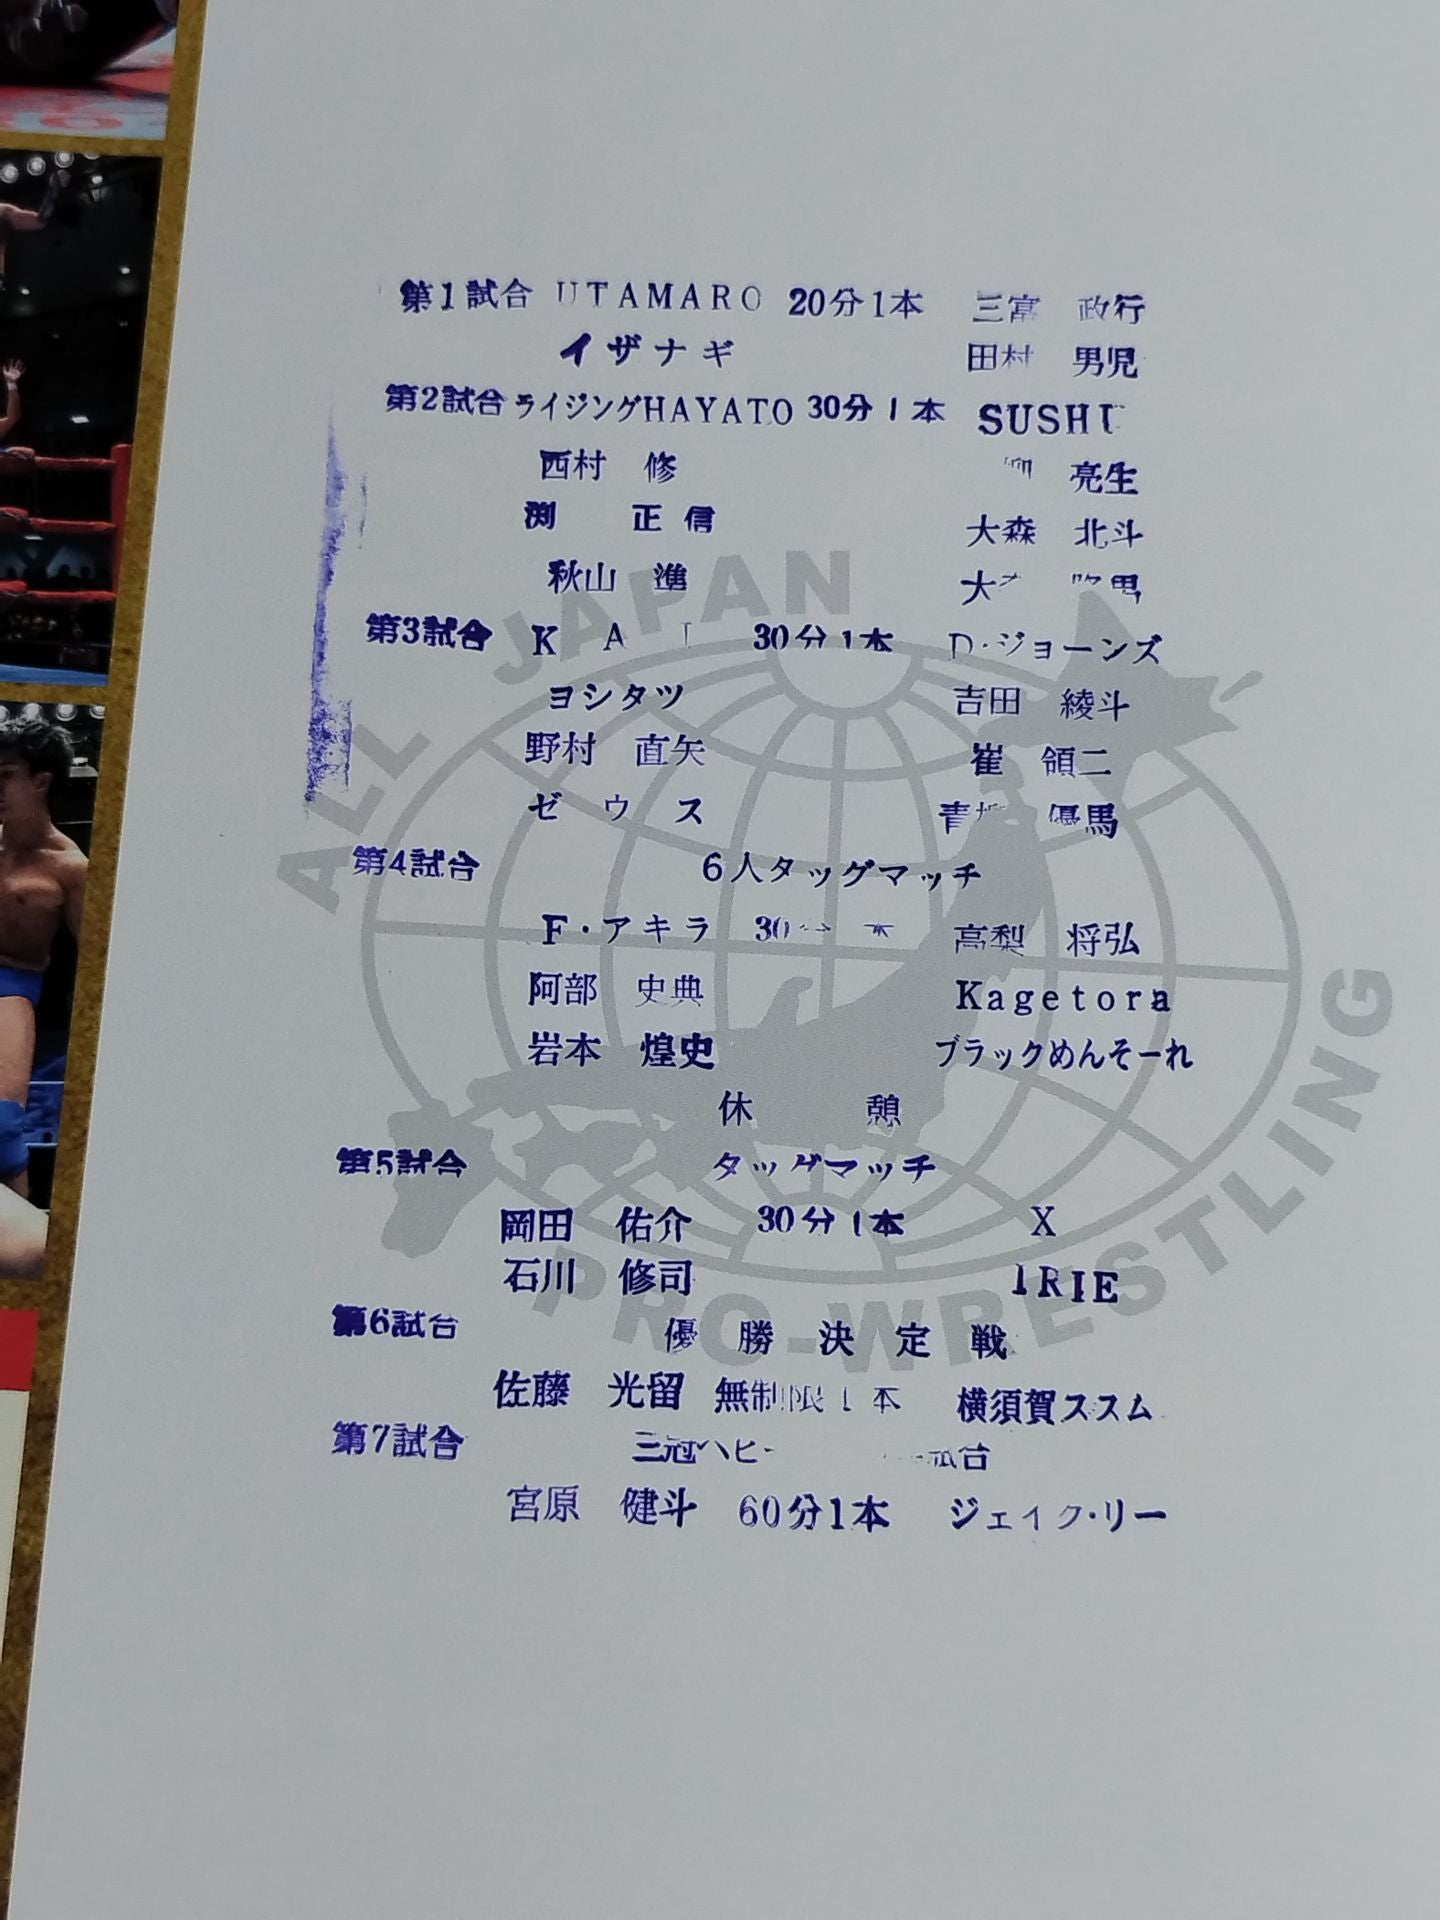 第1試合 UTAMARO 20分1本 三富 政行
イザナギ 田村 男児
第2試合 ライジングHAYATO 30分1本 SUSHI
西村 修 亮生
渕 正信 大森 北斗
秋山 準 大 男
第3試合 KAI 30分1本 D・ジョーンズ
ヨシタツ 吉田 綾斗
野村 直矢 崔 領二
ゼウス 青柳 優馬
第4試合 6人タッグマッチ
F・アキラ 30 本 高梨 将弘
阿部 史典 Kagetora
岩本 煌史 ブラックめんそーれ
休憩
第5試合 タッグマッチ
岡田 佑介 30分1本 X
石川 修司 IRIE
第6試合 優勝決定戦
佐藤 光留 無制限1本 横須賀ススム
第7試合 三冠ヘビー 試合
宮原 健斗 60分1本 ジェイク・リー
ALL JAPAN
PRO-WRESTLING